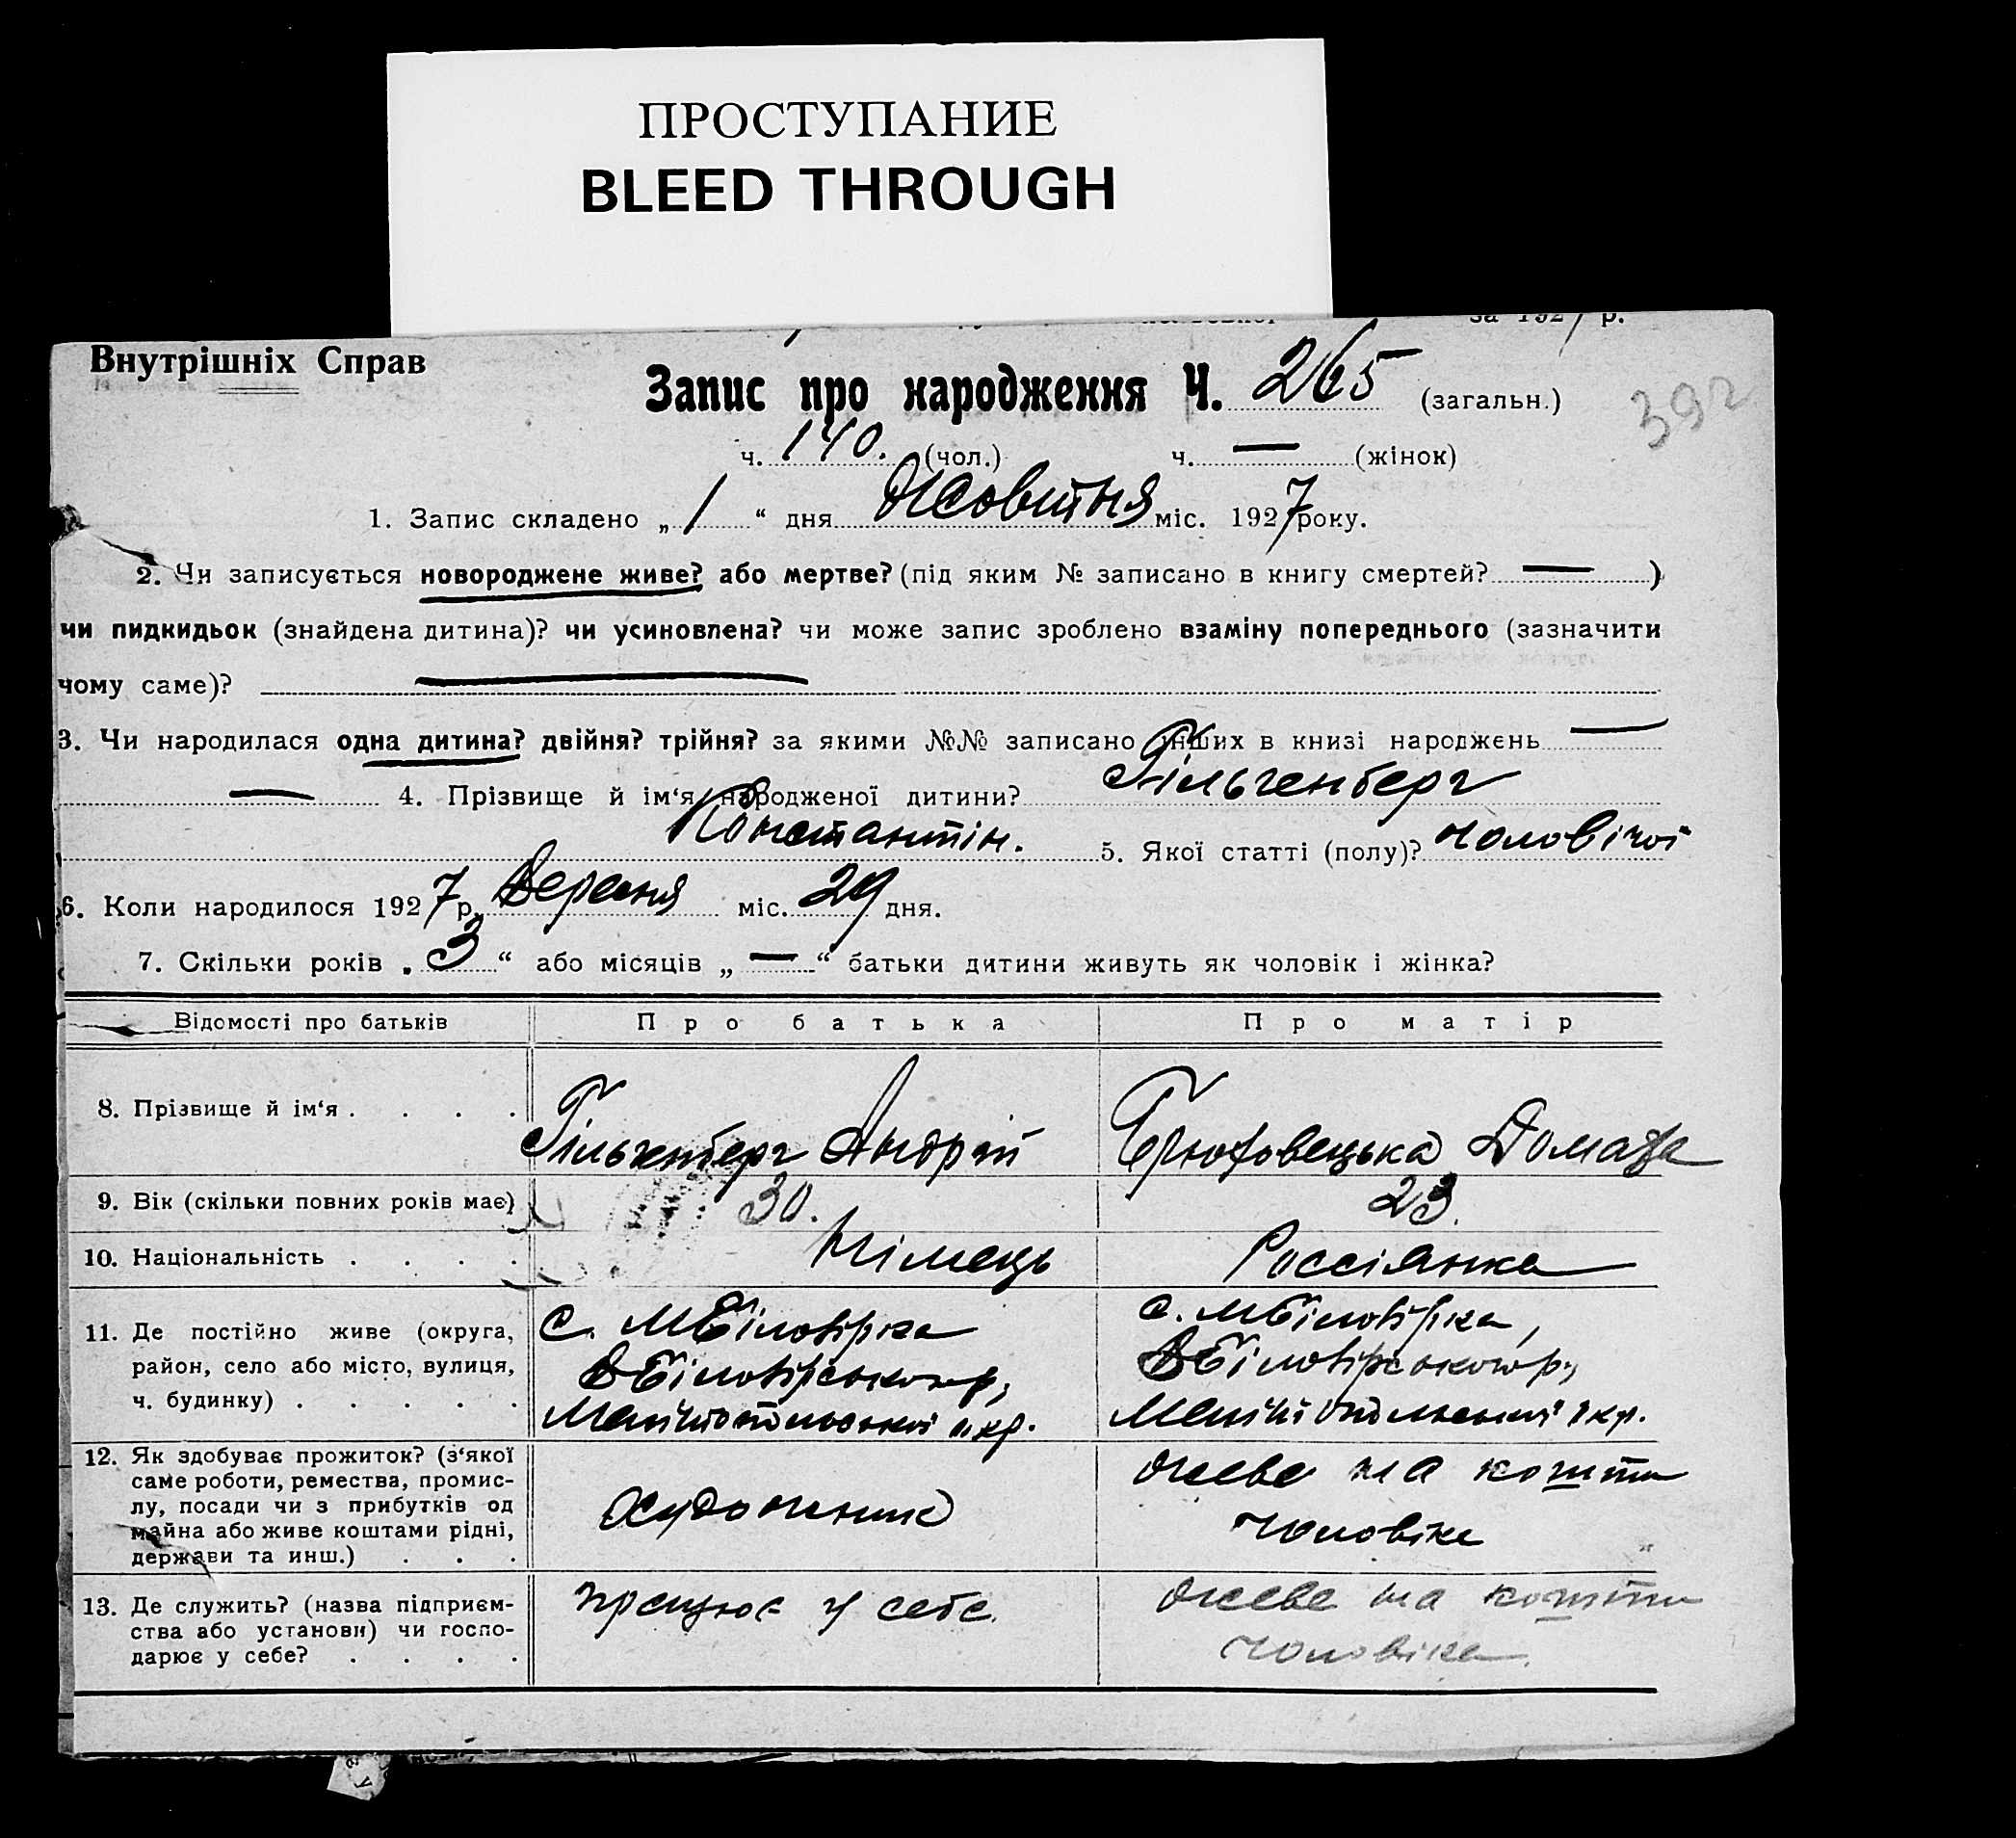 ПРОСТУПАНИЕ
BLEED THROUGH
за 1927 р.
Внутрішніх Справ
Запис про народження Ч. 265 (загальн.)
392
ч. 140. (чол.) ч. — (жінок)
1. Запис складено „ 1 “ дня Жовтня міс. 1927 року.
2. Чи записується новороджене живе? або мертве? (під яким № записано в книгу смертей? — )
чи пидкидьок (знайдена дитина)? чи усиновлена? чи може запис зроблено взаміну попереднього (зазначити
чому саме)? —
3. Чи народилася одна дитина? двійня? трійня? за якими №№ записано інших в книзі народжень —
— 4. Прізвище й ім‘я народженої дитини? Гільгенберг
Константін. 5. Якої статті (полу)? чоловічої
6. Коли народилося 1927 р. Вересня міс. 29 дня.
7. Скільки років „ 3 “ або місяців „ — “ батьки дитини живуть як чоловік і жінка?
Відомості про батьків Про батька Про матір
8. Прізвище й ім‘я . . . . Гільгенберг Андрій Домаха
9. Вік (скільки повних років має) 30. 23.
10. Національність . . . . Німець Россіянка
11. Де постійно живе (округа, район, село або місто, вулиця, ч. будинку) . . . . .
с. МБілозірка
ВБілозірського р,
Мелітопольської окр.
с. МБілозірка,
ВБілозірського р.,
Мелітопольської окр.
12. Як здобуває прожиток? (з‘якої
саме роботи, ремества, промис-
лу, посади чи з прибутків од
майна або живе коштами рідні,
держави та инш.) . . .
художник
живе на кошти
чоловіка
13. Де служить? (назва підприєм-
ства або установи) чи госпо-
дарює у себе? . . . .
працює у себе.
живе на кошти
чоловіка.